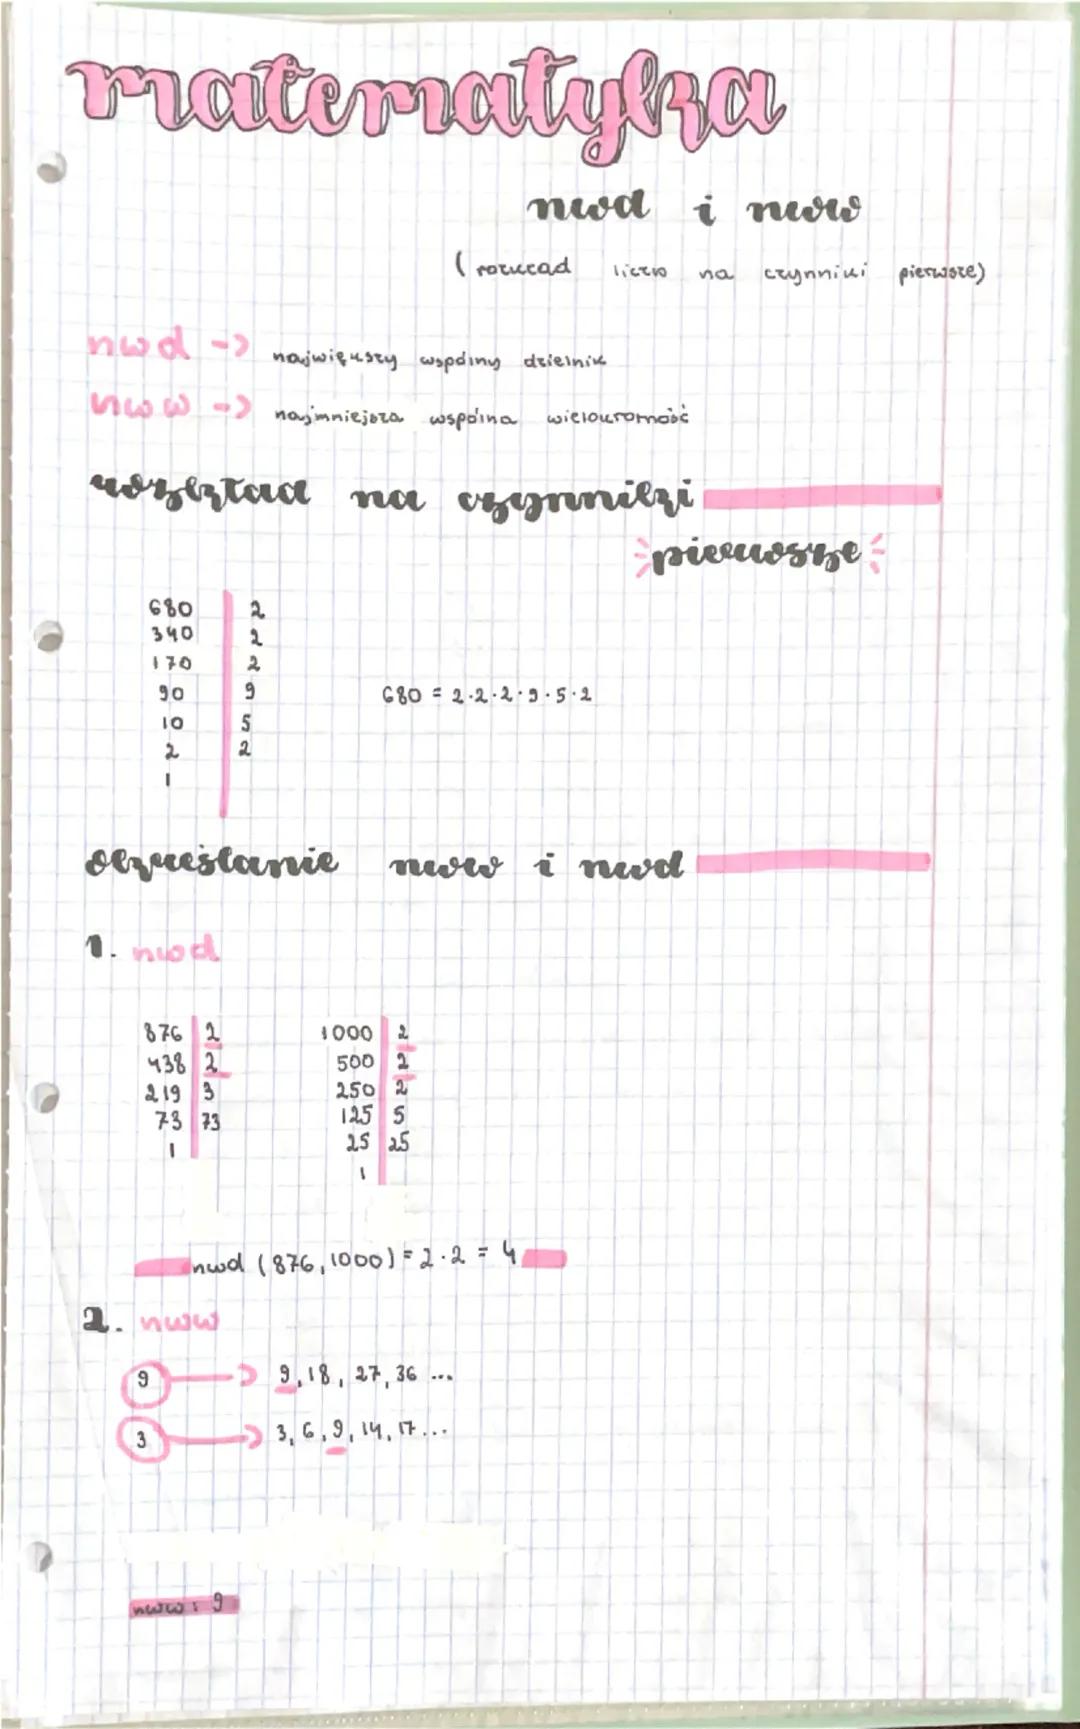 matematyka
nwd i nww
(rozkład liczb na czynniki pierwsze)
nwd -> największy wspólny dzielnik
nww -> najmniejsza wspólna wielokrotność
rozkład na czynniki
pierwsze
680 | 2
340 | 2
170 | 2
90 | 9
680 = 2·2·2·9·5·2
10 | 5
2 | 2
1
określanie nww i nwd
1. nwd
876 | 2 1000 | 2
438 | 2 500 | 2
219 | 3 250 | 2
73 | 73 125 | 5
1 25 | 25
1
nwd (876, 1000) = 2·2 = 4
2. nww
9 -> 9, 18, 27, 36 ...
3 -> 3, 6, 9, 14, 17...
nww: 9